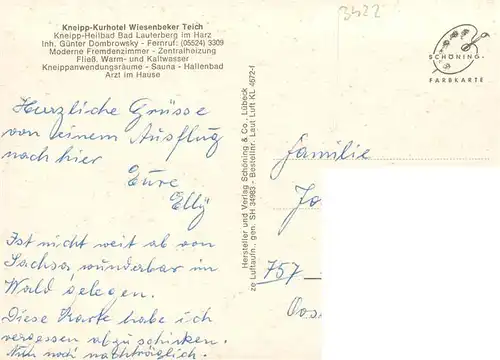 Kneipp-Kurhotel Wiesenbeker Teich
Kneipp-Heilbad Bad Lauterberg im Harz
Inh. Günter Dombrowsky - Fernruf: (05524) 3309
Moderne Fremdenzimmer - Zentralheizung
Fließ. Warm- und Kaltwasser
Kneippanwendungsräume - Sauna - Hallenbad
Arzt im Hause
Herzliche Grüsse
von einem Ausflug
nach hier
Eure
Elly
Ist nicht weit ab von
Sachsa wunderbar im
Wald gelegen.
Diese Karte habe ich
vergessen abzuschicken.
Nun noch nachträglich.
Hersteller und Verlag Schöning & Co., Lübeck
ze Luftaufn., gen. SH 34983 - Bestellnr. Laut Luft KL 4672-f
3422
SCHÖNING-
FARBKARTE
Familie
Jo
757